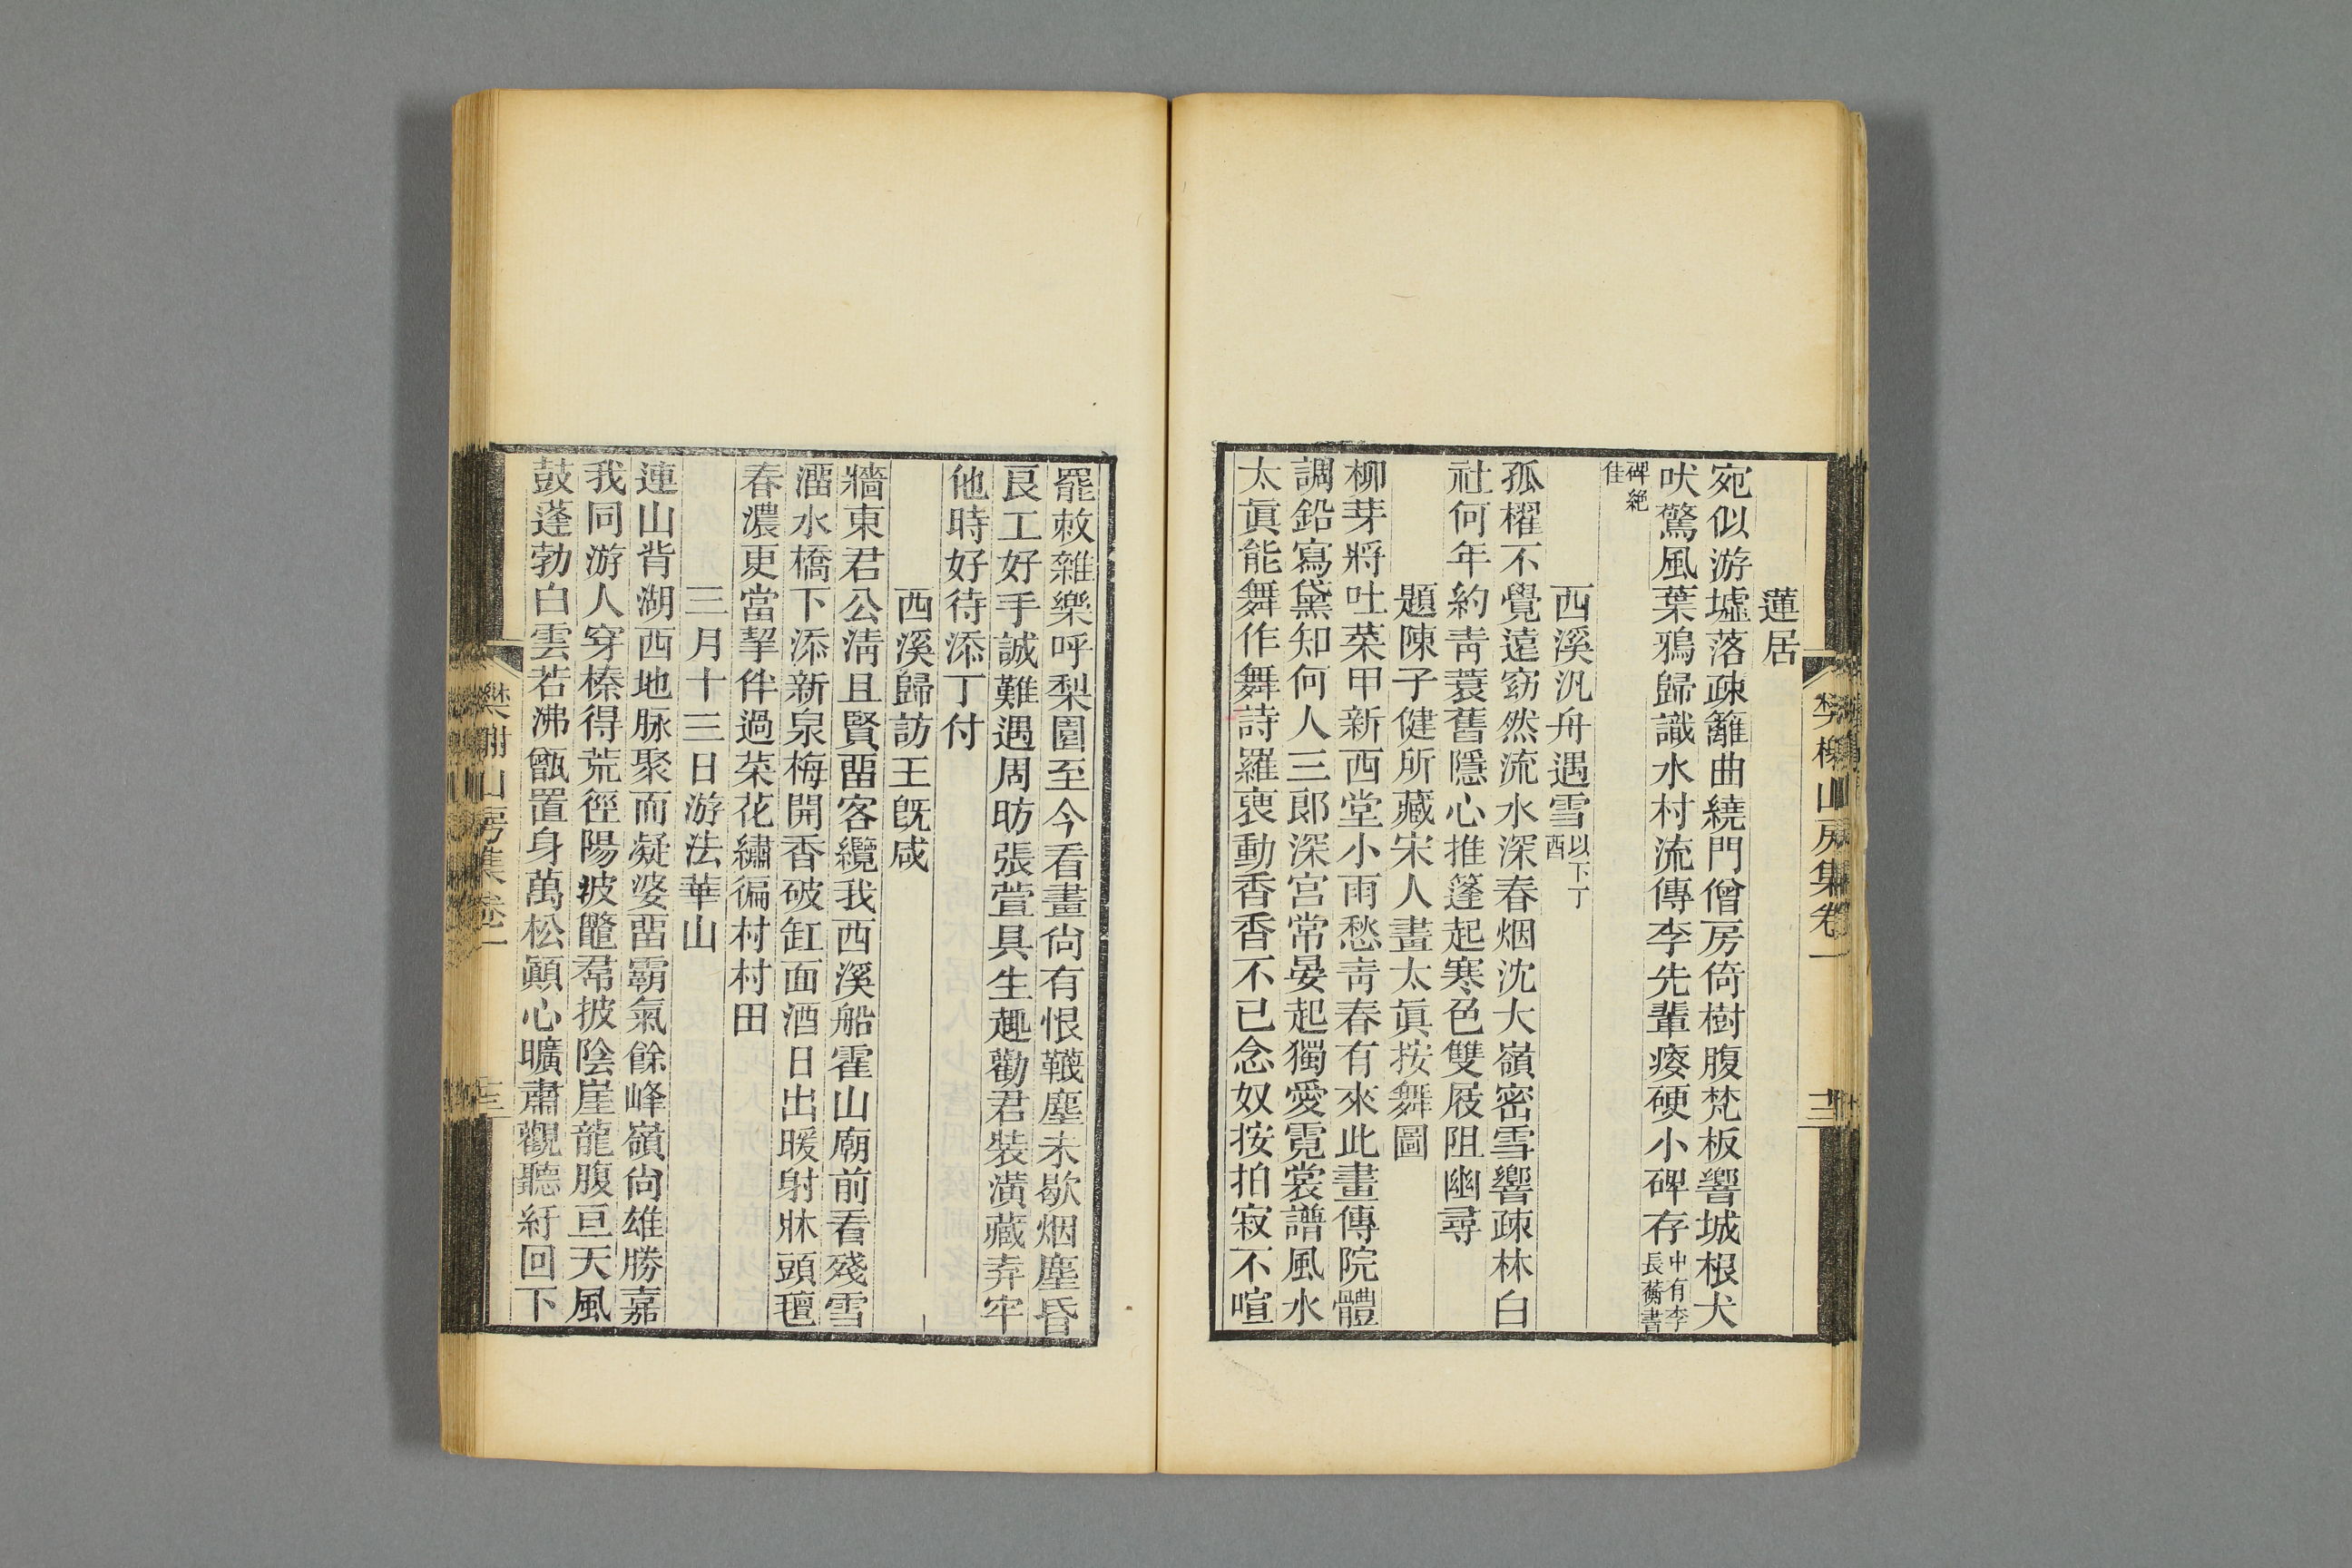 蓮居
宛似游墟落疎籬曲繞門僧房倚樹腹梵板響城根犬
吠驚風葉鴉歸識水村流傳李先輩痿硬小碑存中有李長蘅書
碑絕佳
西溪汎舟遇雪以下丁酉
孤櫂不覺遠窈然流水深春烟沈大嶺密雪響疎林白
社何年約靑蓑舊隱心推篷起寒色雙屐阻幽尋
題陳子健所藏宋人畫太眞按舞圖
柳芽將吐菜甲新西堂小雨愁靑春有來此畫傳院體
調鉛寫黛知何人三郎深宮常晏起獨愛霓裳譜風水
太眞能舞作舞詩羅裛動香香不已念奴按拍寂不喧
罷敕雜樂呼梨園至今看畫尙有恨韤塵未歇烟塵昏
良工好手誠難遇周昉張萱具生趣勸君裝潢藏弆牢
他時好待添丁付
西溪歸訪王旣咸
牆東君公淸且賢畱客纜我西溪船霍山廟前看殘雪
澑水橋下添新泉梅開香破缸面酒日出暖射牀頭氊
春濃更當挈伴過菜花繡徧村村田
三月十三日游法華山
連山背湖西地脉聚而凝婆畱霸氣餘峰嶺尙雄勝嘉
我同游人穿榛得荒徑陽坡鼈帬披陰崖龍腹亘天風
鼓蓬勃白雲若沸甑置身萬松顚心曠肅觀聽紆回下
樊榭山房集卷一